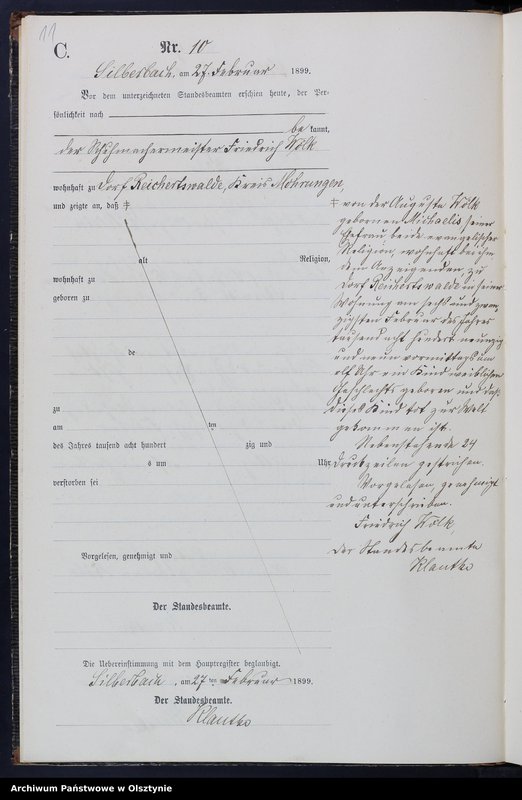 11
C.
Nr. 10
Silberbach, am 27. Februar 1899.
Vor dem unterzeichneten Standesbeamten erschien heute, der Per-
sönlichkeit nach
be kannt,
der Schuhmachermeister Friedrich Wölk
wohnhaft zu Dorf Reichertswalde, Kreis Mohrungen,
und zeigte an, daß ‡
alt Religion,
wohnhaft zu
geboren zu
de
zu
am ten
des Jahres tausend acht hundert zig und
s um Uhr
verstorben sei
‡ von der Auguste Wölk
geborenen Michaelis seiner
Ehefrau beide evangelischer
Religion, wohnhaft bei ihm
dem Anzeigenden, zu
Dorf Reichertswalde in seiner
Wohnung am sechs und zwan-
zigsten Februar des Jahres
tausend acht hundert neunzig
und neun vormittags um
elf Uhr ein Kind weiblichen
Geschlechts geboren und daß
dieses Kind tot zur Welt
gekommen ist.
Nebenstehende 24
Druckzeilen gestrichen.
Vorgelesen, genehmigt
und unterschrieben.
Friedrich Wölk,
Der Standesbeamte
Klautke
Vorgelesen, genehmigt und
Der Standesbeamte.
Die Uebereinstimmung mit dem Hauptregister beglaubigt.
Silberbach, am 27 ten Februar 1899.
Der Standesbeamte.
Klautke
Archiwum Państwowe w Olsztynie